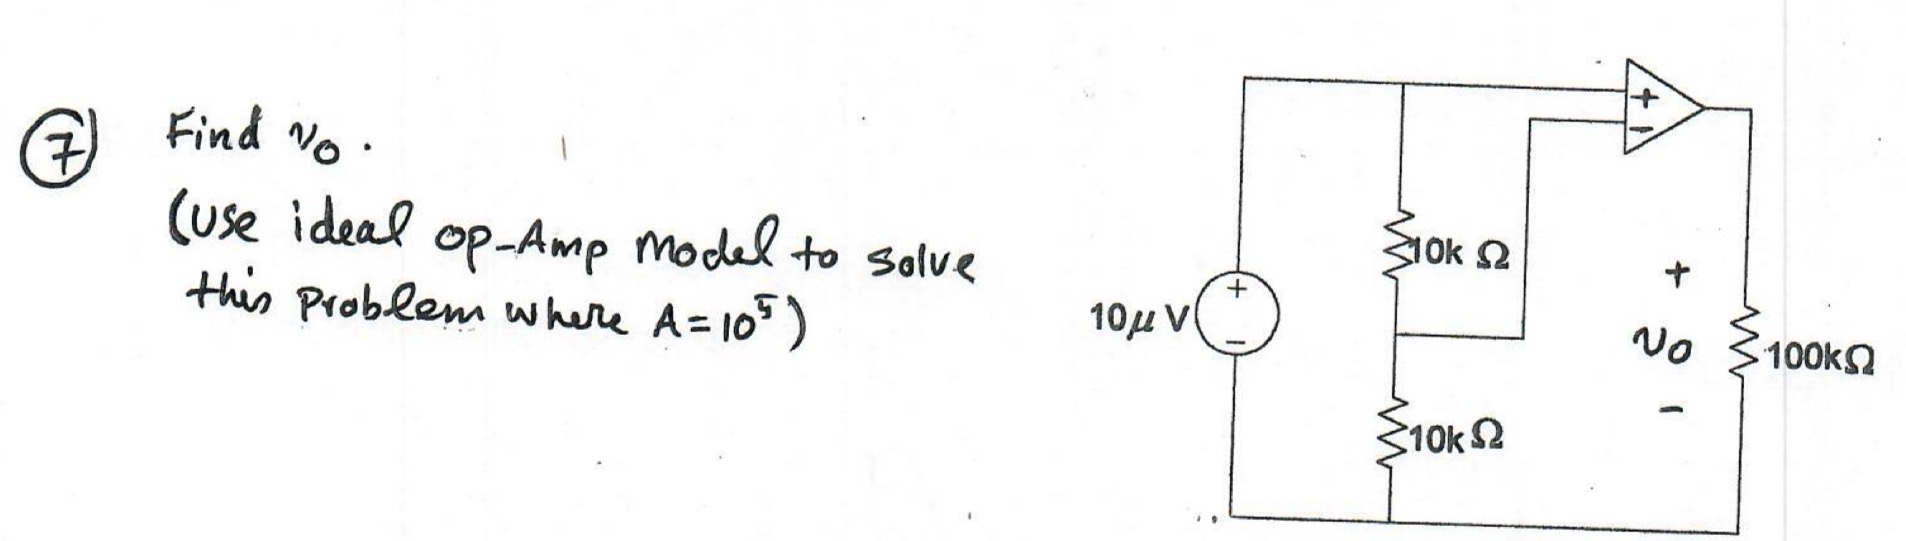 7 Find v₀.
(Use ideal op-Amp Model to solve
this Problem where A=10⁵)
+
−
10k Ω
10μ V
+
−
+
v₀
−
100kΩ
10kΩ